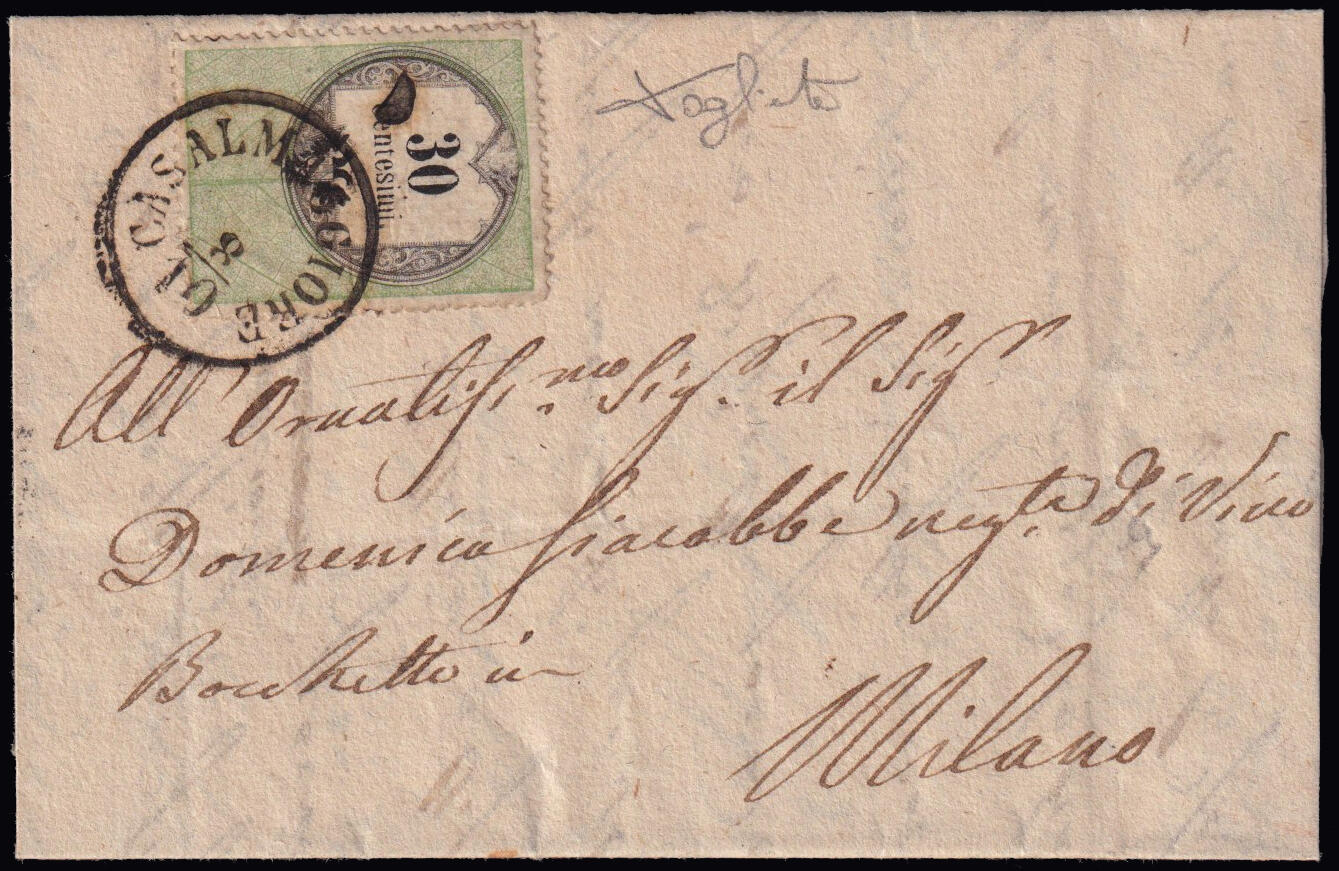 30
entesimi.
CASALMAGGIORE
8
All' Ornatiss.mo Sigr. il Sigr
Domenico Giacobbe negte. di Vino
Bocchetto in
Milano